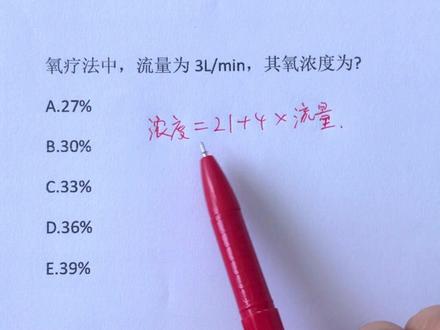 氧疗法中，流量为 3L/min，其氧浓度为?
A.27%
浓度=21+4×流量.
B.30%
C.33%
D.36%
E.39%